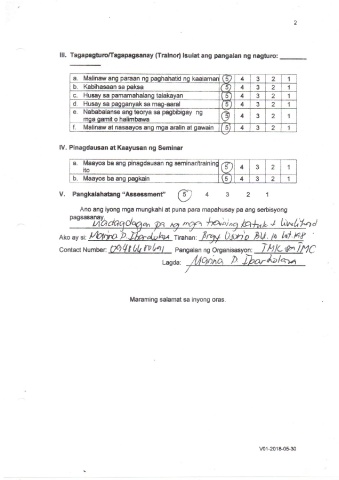 2
III. Tagapagturo/Tagapagsanay (Trainor) Isulat ang pangalan ng nagturo:
a. Malinaw ang paraan ng paghahatid ng kaalaman 5 4 3 2 1
b. Kabihasaan sa paksa 5 4 3 2 1
c. Husay sa pamamahalang talakayan 5 4 3 2 1
d. Husay sa pagganyak sa mag-aaral 5 4 3 2 1
e. Nababalanse ang teorya sa pagbibigay ng
mga gamit o halimbawa 5 4 3 2 1
f. Malinaw at nasaayos ang mga aralin at gawain 5 4 3 2 1
IV. Pinagdausan at Kaayusan ng Seminar
a. Maayos ba ang pinagdausan ng seminar/training
ito 5 4 3 2 1
b. Maayos ba ang pagkain 5 4 3 2 1
V. Pangkalahatang "Assessment" 5 4 3 2 1
Ano ang iyong mga mungkahi at puna para mapahusay pa ang serbisyong
pagsasanay. Madagdagan pa ng mga training
Ako ay si: Marina D. Tirahan: Brgy
Contact Number: Pangalan ng Organisasyon: TMK TMC
Lagda: Marina D.
Maraming salamat sa inyong oras.
V01-2018-05-30